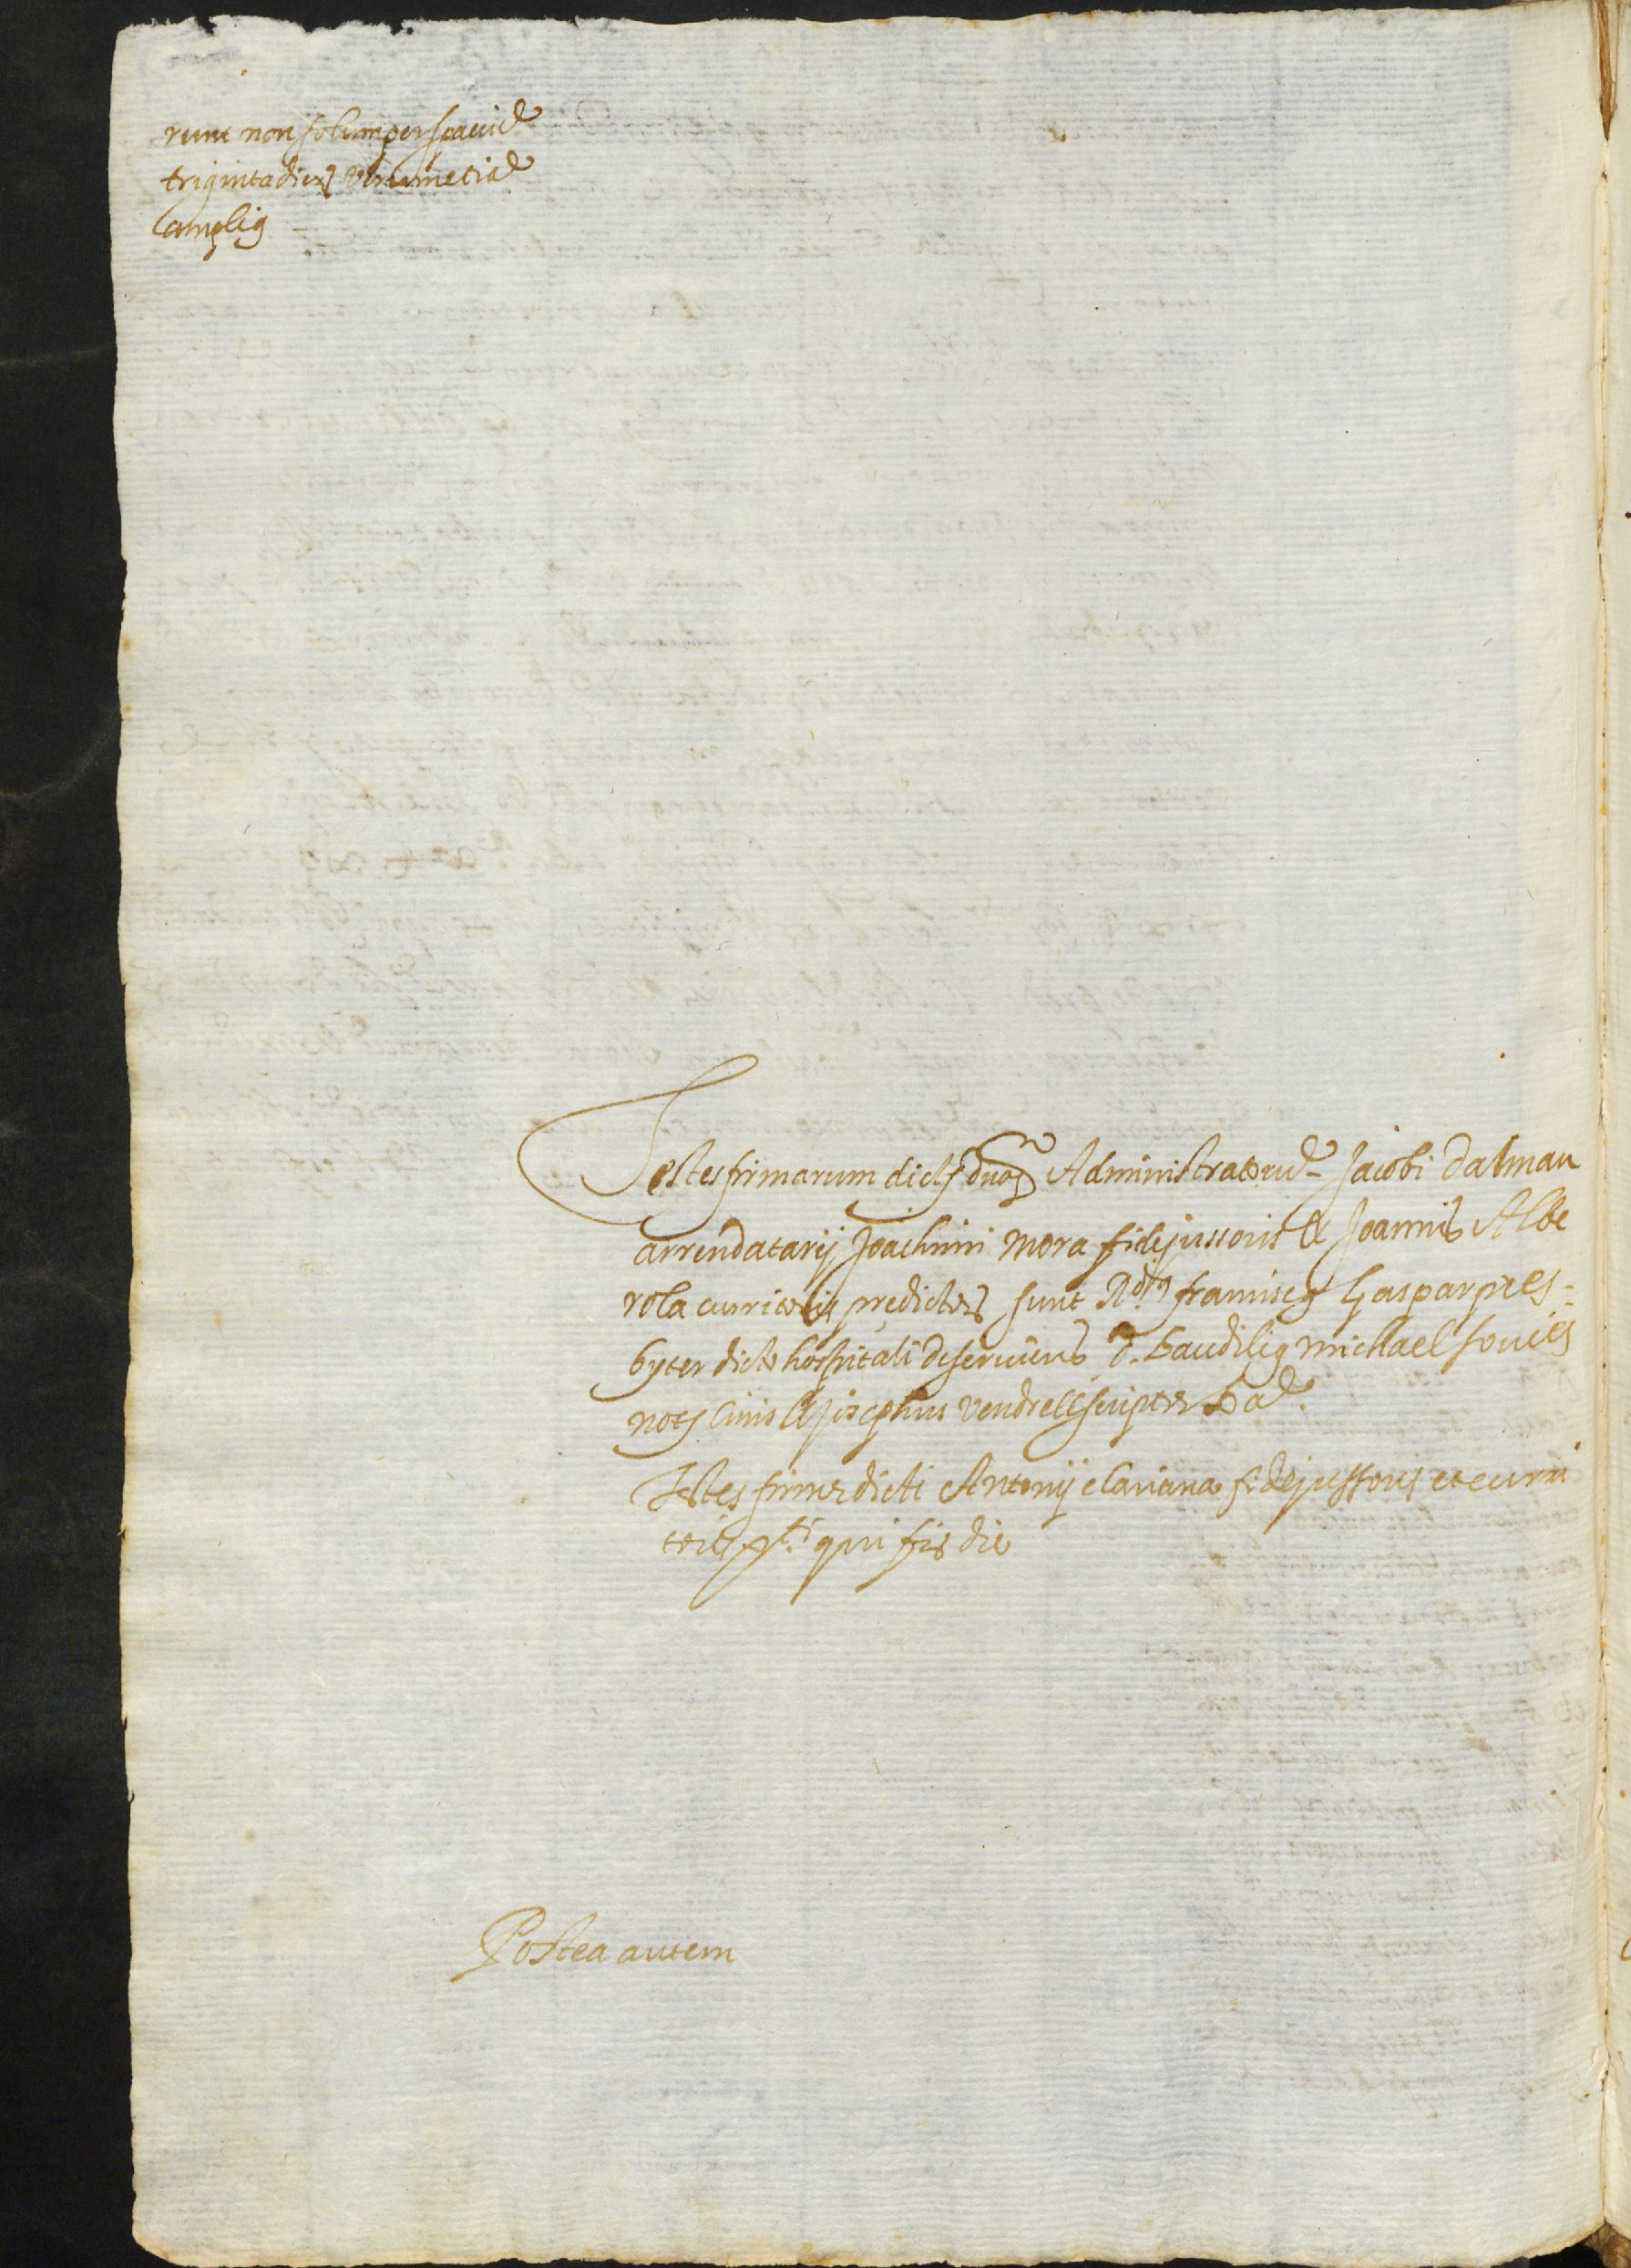 runt non solum per spaciu
triginta dieȝ verum etia
ampliꝰ
Testes firmarum dictȝ duoȝ Administratoru Jacobi dalmau
arrendatarij Joachimi mora fidejussoris & Joannis Albe
rola curritoris predictoȝ sunt Rdꝰ franciscꝰ Gaspar pres=
byter dicto hospitali deserviens d. baudiliꝰ michael
not civis & Josephus vendrell scriptor
Testes firme dicti Antonij claviana fidejussoris et curri
toris qui fir die
Postea autem